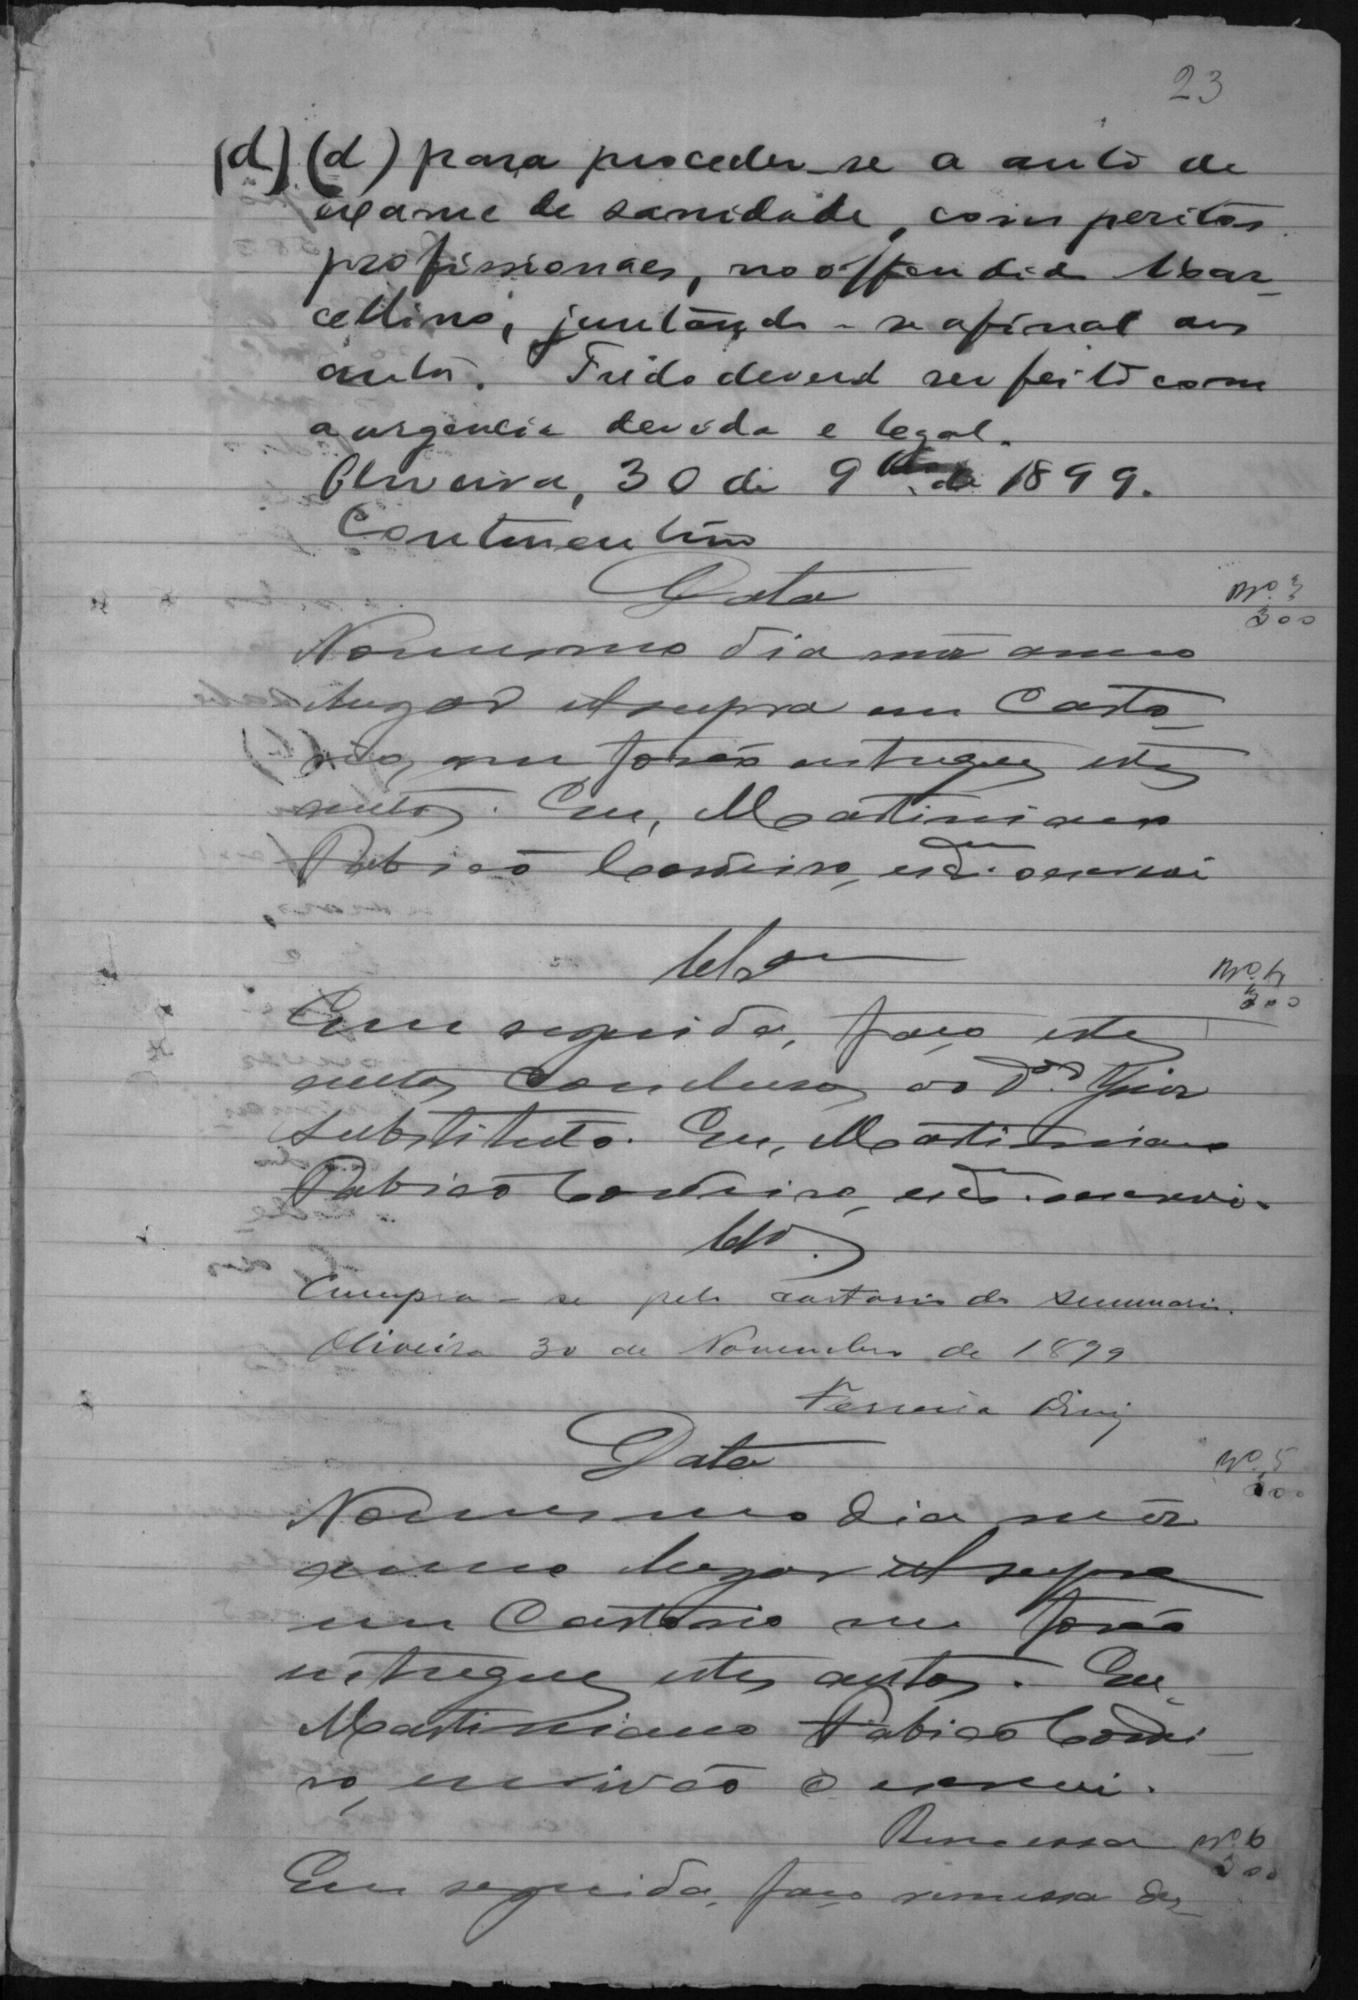 23
(d) (d) para proceder-se a auto de
exame de sanidade, com peritos
profissionaes, no offendido Mar-
cellino, juntando-se afinal aos
autos. Tudo deverá ser feito com
a urgencia devida e legal.
Oliveira, 30 de 9bro de 1899.
Continentino
Data
Nº 3
300
No mesmo dia mez anno
lugar et supra em Carto-
rio, me forão entregues estes
autos. Eu, Martiniano
Pabião Cordeiro, escrivão o escrevi
Clsam
Nº 4
300
Em seguida, faço estes
autos conclusos ao Dor. Juiz
substituto. Eu, Martiniano
Pabião Cordeiro, escrão o escrevi.
Clsos.
Cumpra-se pelo cartorio do summario.
Oliveira 30 de Novembro de 1899
Ferreira Diniz
Data
Nº 5
300
No mesmo dia mez
anno lugar et supra
em Cartorio me forão
entregues estes autos. Eu,
Martiniano Pabião Cordei-
ro, escrivão o escrevi.
Remessa
Nº 6
300
Em seguida, faço remessa des-